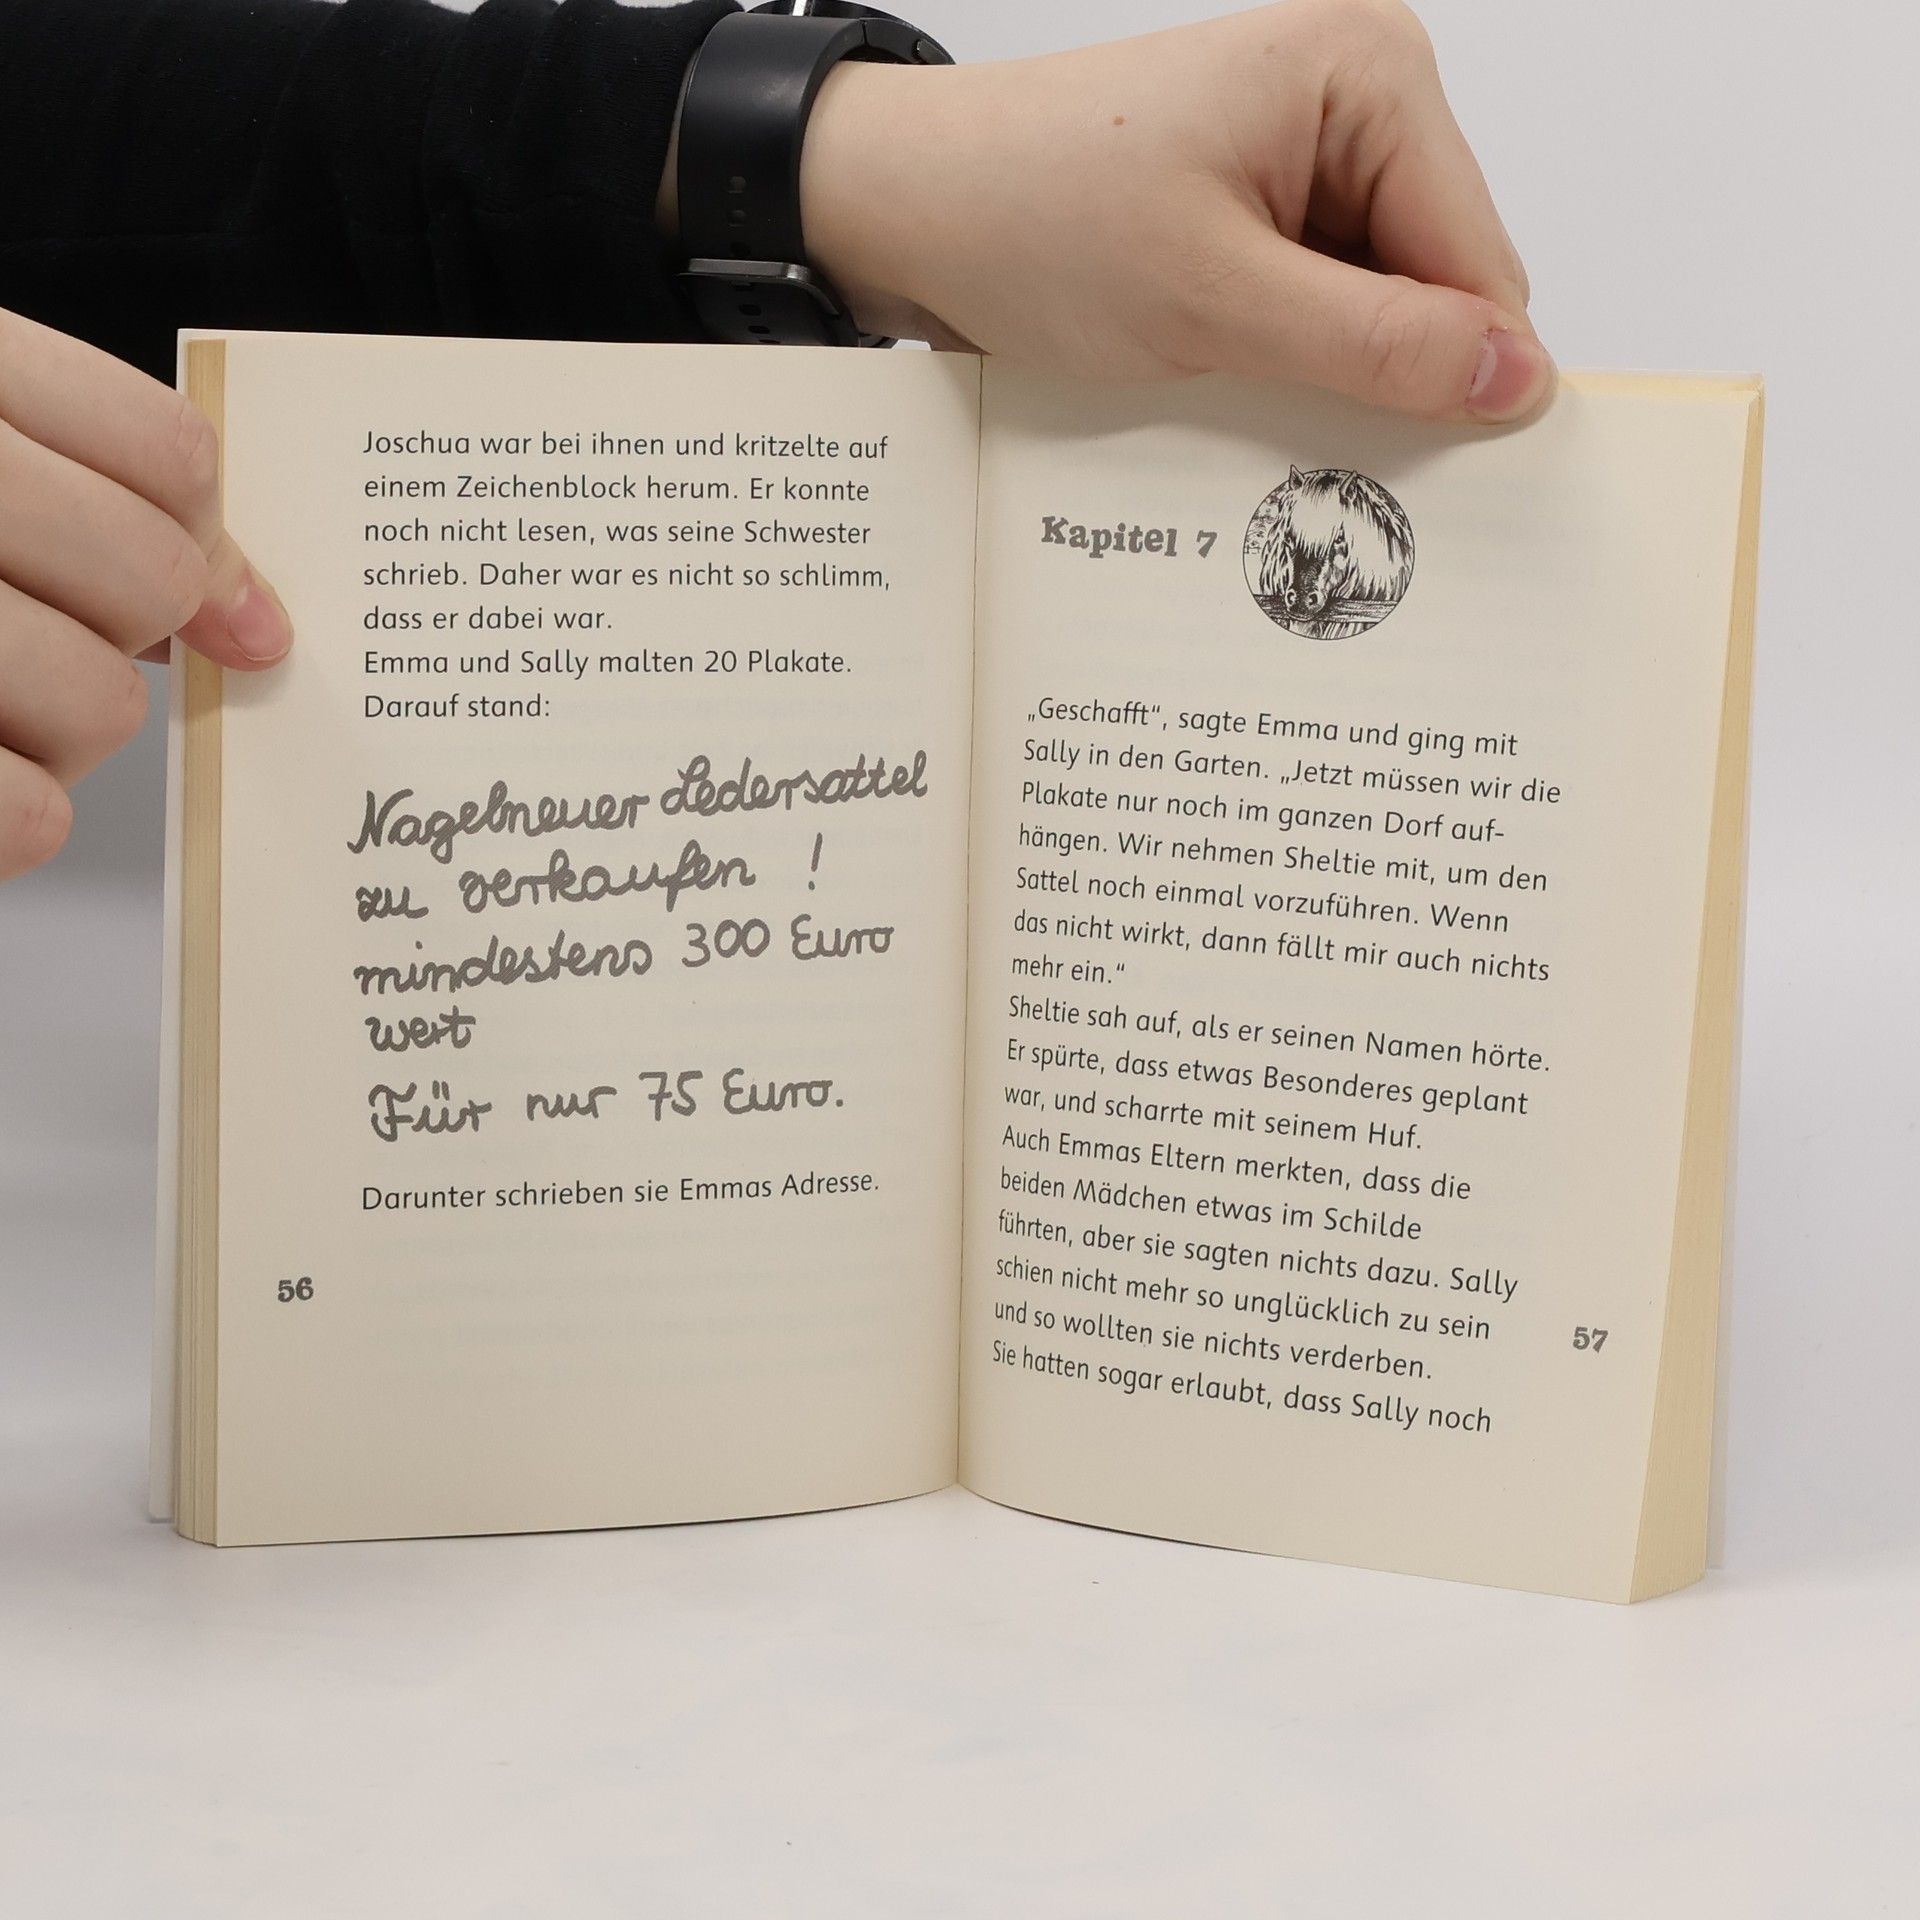 Joschua war bei ihnen und kritzelte auf
einem Zeichenblock herum. Er konnte
noch nicht lesen, was seine Schwester
schrieb. Daher war es nicht so schlimm,
dass er dabei war.
Emma und Sally malten 20 Plakate.
Darauf stand:
Nagelneuer Ledersattel
zu verkaufen !
mindestens 300 Euro
wert
Für nur 75 Euro.
Darunter schrieben sie Emmas Adresse.
56
Kapitel 7
„Geschafft“, sagte Emma und ging mit
Sally in den Garten. „Jetzt müssen wir die
Plakate nur noch im ganzen Dorf auf-
hängen. Wir nehmen Sheltie mit, um den
Sattel noch einmal vorzuführen. Wenn
das nicht wirkt, dann fällt mir auch nichts
mehr ein.“
Sheltie sah auf, als er seinen Namen hörte.
Er spürte, dass etwas Besonderes geplant
war, und scharrte mit seinem Huf.
Auch Emmas Eltern merkten, dass die
beiden Mädchen etwas im Schilde
führten, aber sie sagten nichts dazu. Sally
schien nicht mehr so unglücklich zu sein
und so wollten sie nichts verderben.
Sie hatten sogar erlaubt, dass Sally noch
57